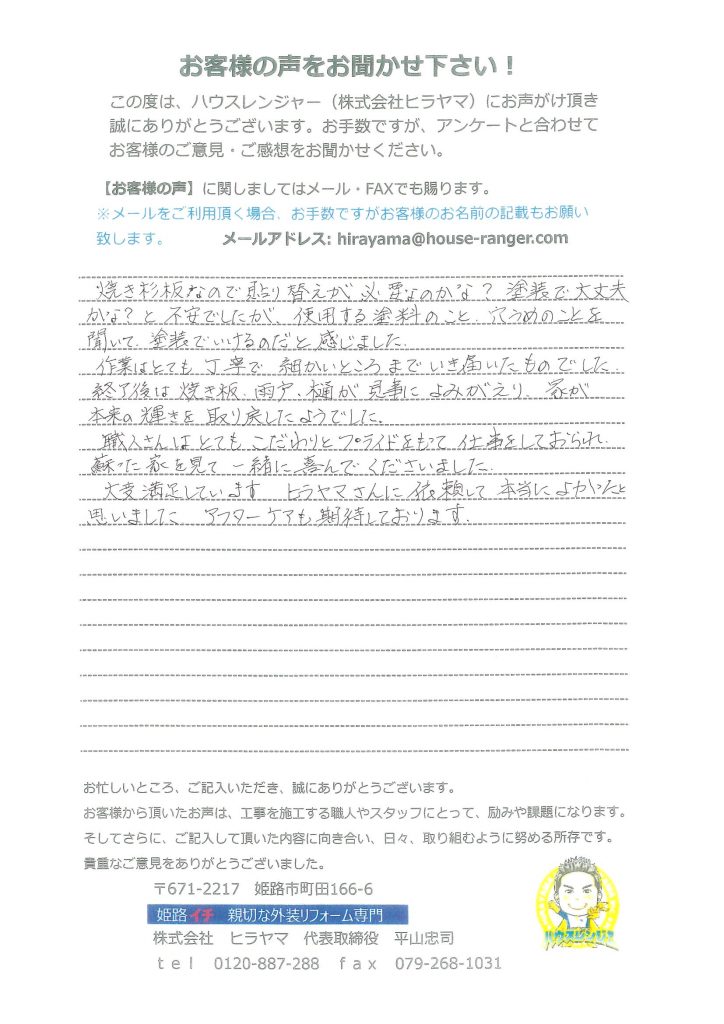 お客様の声をお聞かせ下さい！
この度は、ハウスレンジャー（株式会社ヒラヤマ）にお声がけ頂き
誠にありがとうございます。お手数ですが、アンケートと合わせて
お客様のご意見・ご感想をお聞かせください。
【お客様の声】に関しましてはメール・FAXでも賜ります。
※メールをご利用頂く場合、お手数ですがお客様のお名前の記載もお願い
致します。 メールアドレス: hirayama@house-ranger.com
焼き杉板なので貼り替えが必要なのかな？塗装で大丈夫
かな？と不安でしたが、使用する塗料のこと、穴うめのことを
聞いて、塗装でいけるのだと感じました。
作業はとても丁寧で細かいところまでいき届いたものでした
終了後は焼き板、雨戸、樋が見事によみがえり、家が
本来の輝きを取り戻したようでした。
職人さんはとてもこだわりとプライドをもって仕事をしておられ、
蘇った家を見て一緒に喜んでくださいました。
大変満足しています ヒラヤマさんに依頼して本当によかったと
思いました アフターケアも期待しております。
お忙しいところ、ご記入いただき、誠にありがとうございます。
お客様から頂いたお声は、工事を施工する職人やスタッフにとって、励みや課題になります。
そしてさらに、ご記入して頂いた内容に向き合い、日々、取り組むように努める所存です。
貴重なご意見をありがとうございました。
〒671-2217 姫路市町田166-6
姫路イチ 親切な外装リフォーム専門
株式会社 ヒラヤマ 代表取締役 平山忠司
ｔｅｌ 0120-887-288 ｆａｘ 079-268-1031
ハウスレンジャー